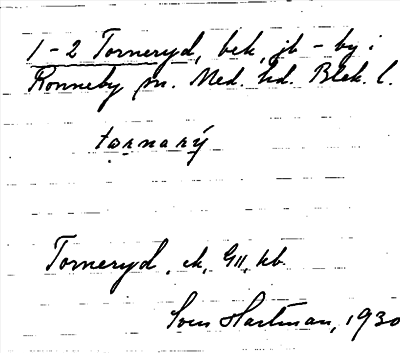 1-2 Torneryd, bek, jb - by i
Ronneby sn. Med. hd. Blek. l.
tornarý
Torneryd, ek, GII, kb.
Sven Hartman, 1930